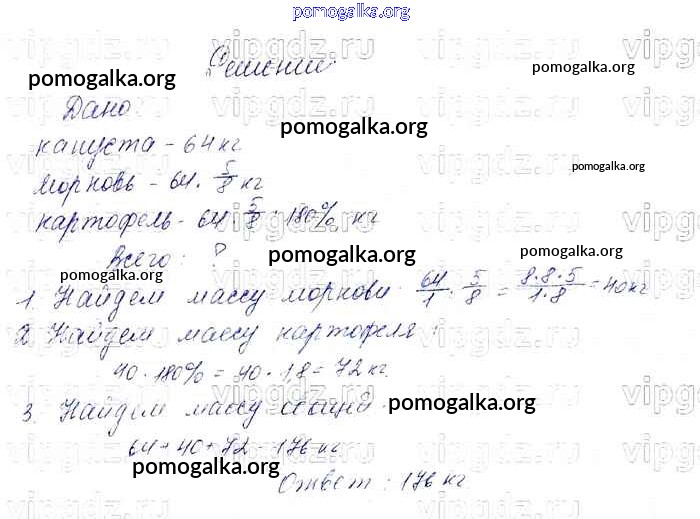 pomogalka.org
Решение
pomogalka.org
pomogalka.org
Дано
pomogalka.org
капуста - 64 кг
pomogalka.org
морковь - 64 · 5/8 кг
картофель - 64 · 5/8 · 180% кг
Всего: ?
pomogalka.org
pomogalka.org
1. Найдем массу моркови 64/1 · 5/8 = 8·8·5/1·8 = 40 кг
2. Найдем массу картофеля:
40 · 180% = 40 · 1,8 = 72 кг
3. Найдем массу общей
pomogalka.org
64 + 40 + 72 = 176 кг
pomogalka.org
Ответ: 176 кг
vipgdz.ru